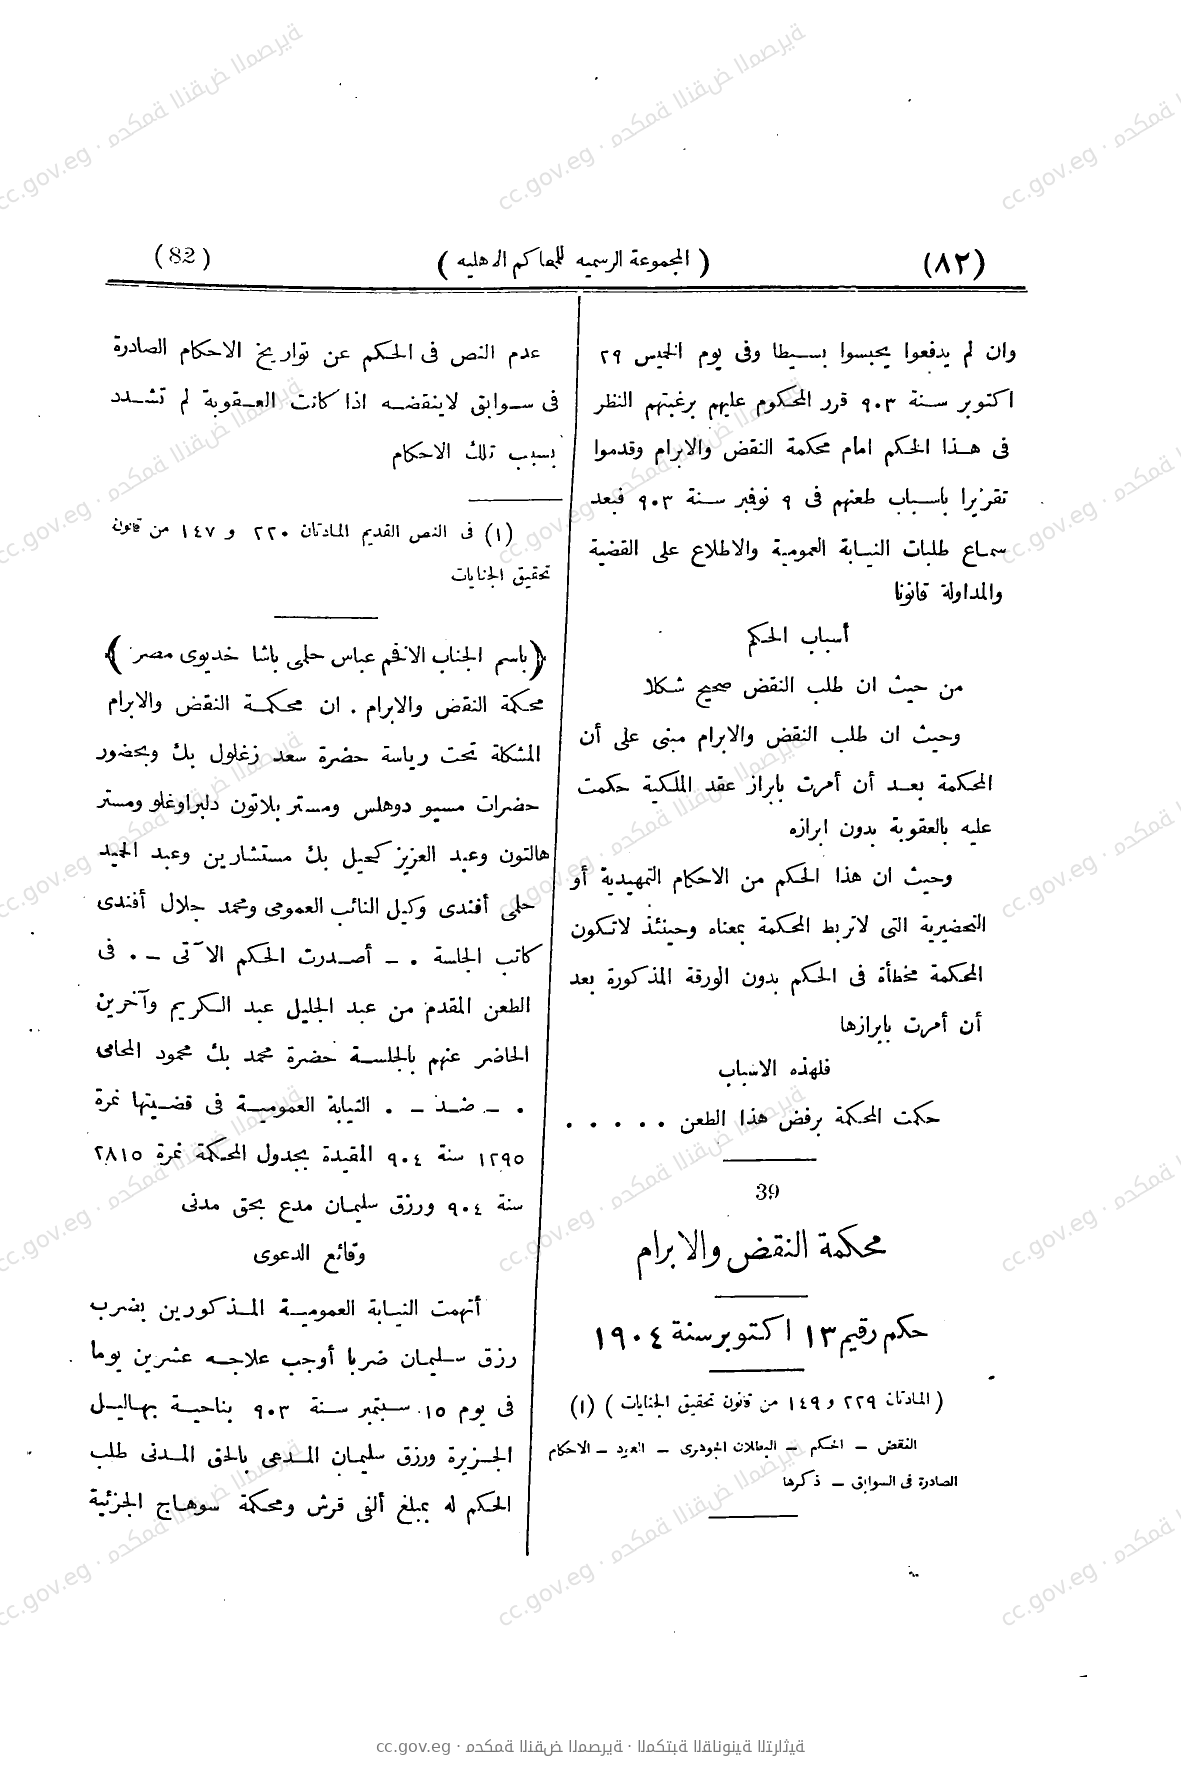 (٨٢) ( المجموعة الرسميه للمحاكم الاهليه ) (82)
وان لم يدفعوا يحبسوا بسيطا وفى يوم الخميس ٢٩
اكتوبر سنة ٩٠٣ قرر المحكوم عليهم برغبتهم النظر
فى هذا الحكم امام محكمة النقض والابرام وقدموا
تقريرا باسباب طعنهم فى ٩ نوفمبر سنة ٩٠٣ فبعد
سماع طلبات النيابة العمومية والاطلاع على القضية
والمداولة قانونا
أسباب الحكم
من حيث ان طلب النقض صحيح شكلا
وحيث ان طلب النقض والابرام مبنى على أن
المحكمة بعد أن أمرت بابراز عقد الملكية حكمت
عليه بالعقوبة بدون ابرازه
وحيث ان هذا الحكم من الاحكام التمهيدية أو
التحضيرية التى لاتربط المحكمة بمعناه وحينئذ لاتكون
المحكمة مخطأة فى الحكم بدون الورقة المذكورة بعد
أن أمرت بابرازها
فلهذه الاسباب
حكمت المحكمة برفض هذا الطعن . . . . .
39
محكمة النقض والابرام
حكم رقيم ١٣ اكتوبر سنة ١٩٠٤
( المادتان ٢٢٩ و ١٤٩ من قانون تحقيق الجنايات ) (١)
النقض – الحكم – البطلان الجوهرى – العود – الاحكام
الصادرة فى السوابق – ذكرها
عدم النص فى الحكم عن تواريخ الاحكام الصادرة
فى سوابق لاينقضه اذا كانت العقوبة لم تشدد
بسبب تلك الاحكام
(١) فى النص القديم المادتان ٢٢٠ و ١٤٧ من قانون
تحقيق الجنايات
( باسم الجناب الافخم عباس حلمى باشا خديوى مصر )
محكمة النقض والابرام . ان محكمة النقض والابرام
المشكلة تحت رياسة حضرة سعد زغلول بك وبحضور
حضرات مسيو دوهلس ومستر بلاتون دلبراوغلو ومستر
هالتون وعبد العزيز كحيل بك مستشارين وعبد الحميد
حلمى أفندى وكيل النائب العمومى ومحمد جلال أفندى
كاتب الجلسة . – أصدرت الحكم الآتى – . فى
الطعن المقدم من عبد الجليل عبد الكريم وآخرين
الحاضر عنهم بالجلسة حضرة محمد بك محمود المحامى
. – ضد – . النيابة العمومية فى قضيتها نمرة
١٢٩٥ سنة ٩٠٤ المقيدة بجدول المحكمة نمرة ٢٨١٥
سنة ٩٠٤ ورزق سليمان مدع بحق مدنى
وقائع الدعوى
أتهمت النيابة العمومية المذكورين بضرب
رزق سليمان ضربا أوجب علاجه عشرين يوما
فى يوم ١٥ سبتمبر سنة ٩٠٣ بناحية بهاليل
الجزيرة ورزق سليمان المدعى بالحق المدنى طلب
الحكم له بمبلغ ألفى قرش ومحكمة سوهاج الجزئية
cc.gov.eg · محكمة النقض المصرية · المكتبة القانونية التراثية